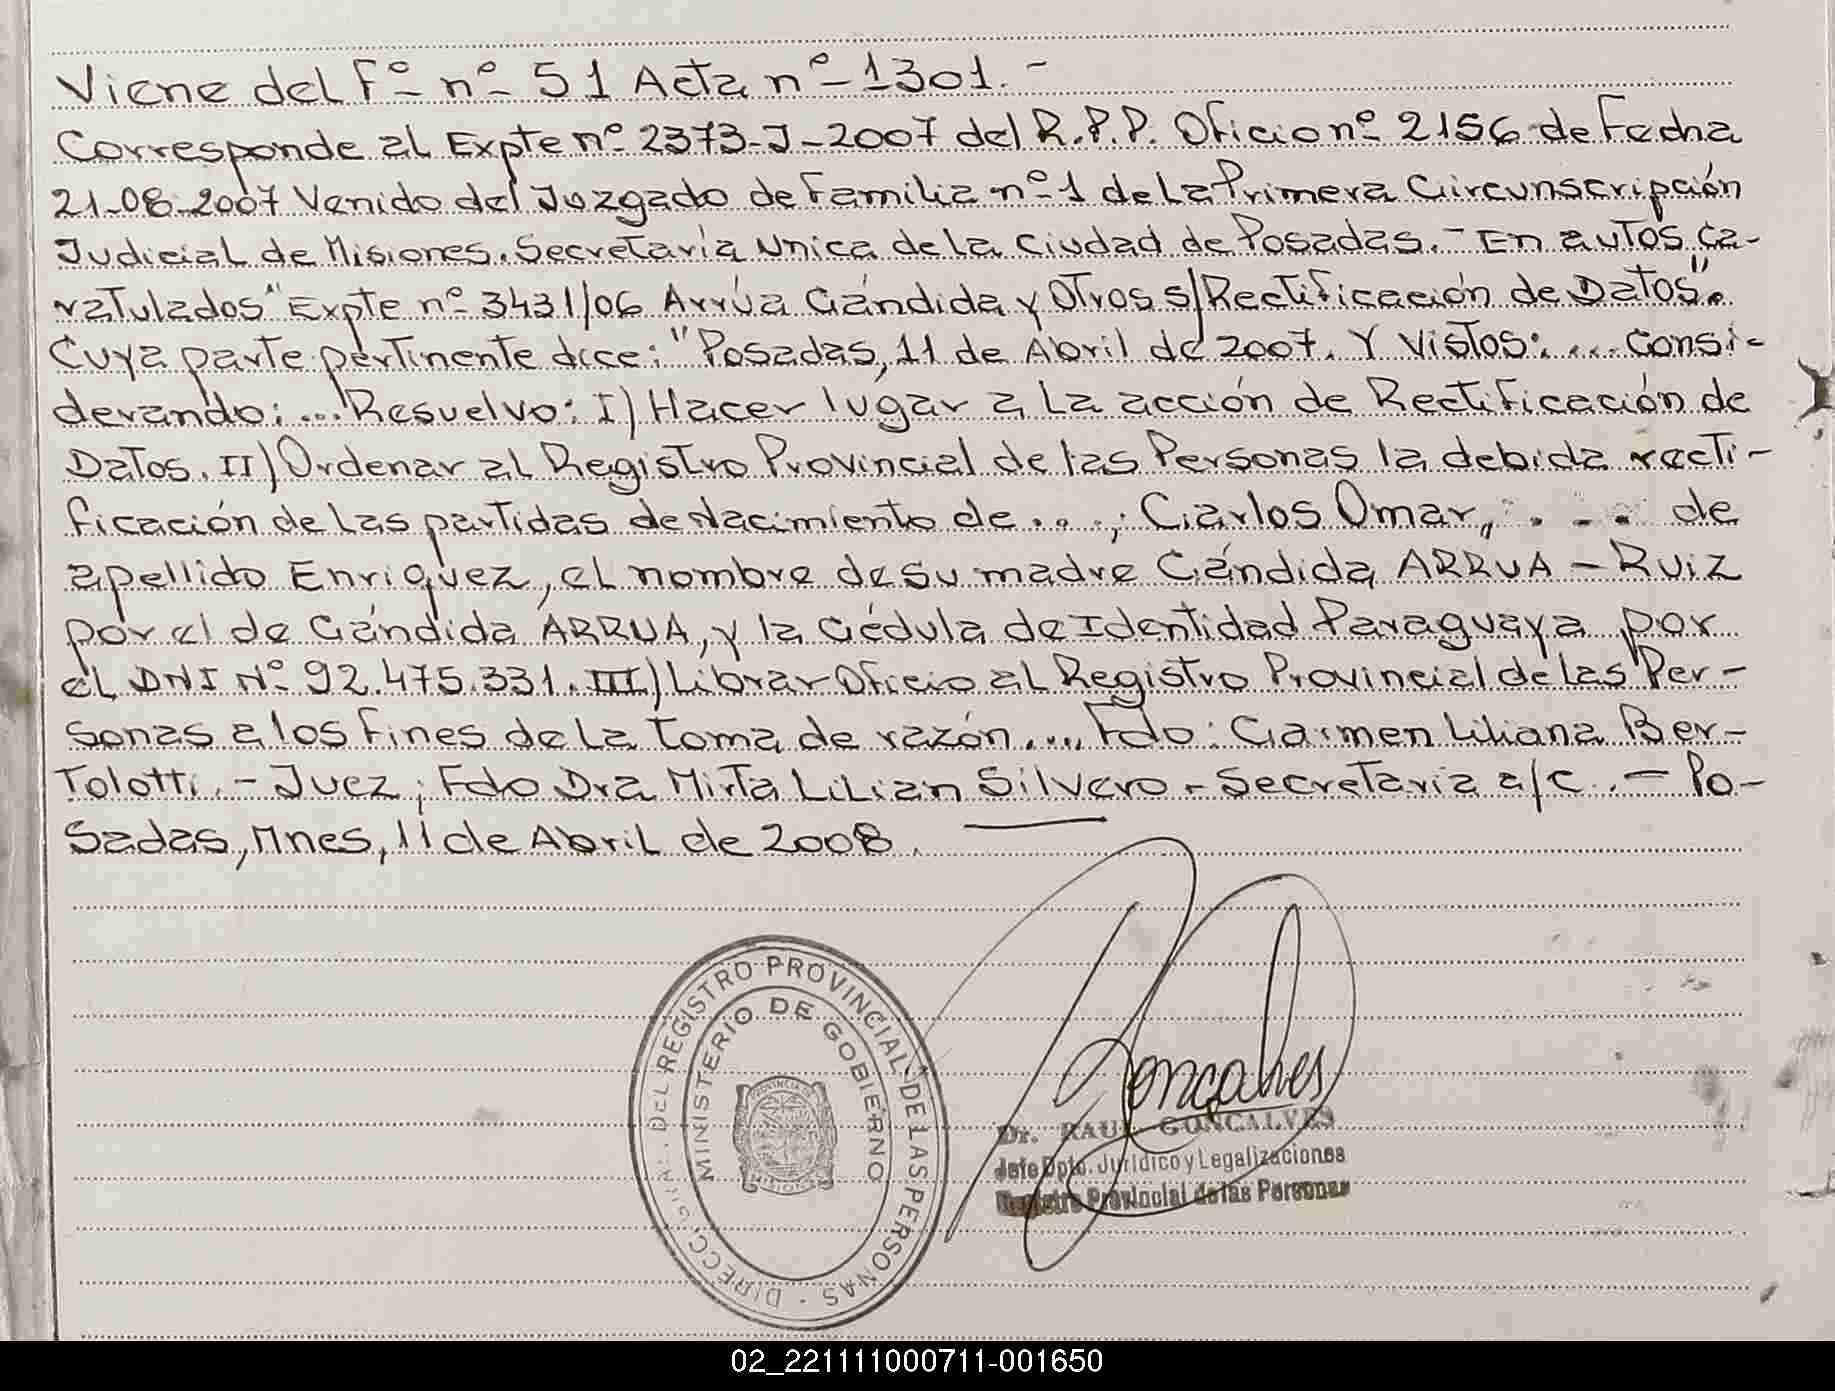 Viene del Fº nº 51 Acta nº 1301.-
Corresponde al Expte nº 2373-J-2007 del R.P.P. Oficio nº 2156 de Fecha
21-08-2007 Venido del Juzgado de Familia nº 1 de La Primera Circunscripción
Judicial de Misiones. Secretaría Unica de la Ciudad de Posadas.- En autos Ca-
ratulados "Expte nº 3431/06 Arrúa Cándida y Otros s/Rectificación de Datos".
Cuya parte pertinente dice: "Posadas, 11 de Abril de 2007. Y Vistos:.... Consi-
derando:...Resuelvo: I) Hacer lugar a La acción de Rectificación de
Datos. II) Ordenar al Registro Provincial de las Personas la debida recti-
ficación de Las partidas de nacimiento de...; Carlos Omar,... de
apellido Enriquez, el nombre de su madre Cándida ARRUA - Ruiz
por el de Cándida ARRUA, y la Cédula de Identidad Paraguaya por
el DNI Nº 92.475.331. III) Librar Oficio al Registro Provincial de Las Per-
sonas a los fines de La toma de razón.... Fdo: Carmen Liliana Ber-
Tolotti.- Juez; Fdo Dra Mirta LiLian Silvero - Secretaria a/c.- Po-
Sadas, Mnes, 11 de Abril de 2008.
DIRECC. GRAL. DEL REGISTRO PROVINCIAL DE LAS PERSONAS
MINISTERIO DE GOBIERNO
PROVINCIA DE
MISIONES
Goncalves
Dr. RAUL GONCALVES
Jefe Dpto. Jurídico y Legalizaciones
Registro Provincial de las Personas
02_221111000711-001650